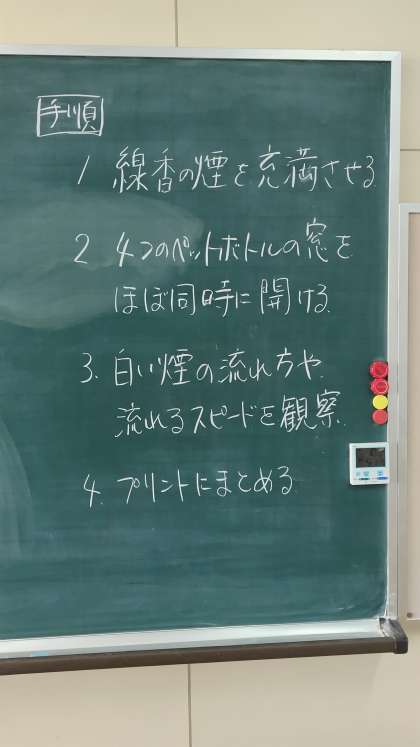 手順
1 線香の煙を充満させる
2 4つのペットボトルの窓を
ほぼ同時に開ける
3. 白い煙の流れ方や
流れるスピードを観察
4. プリントにまとめる